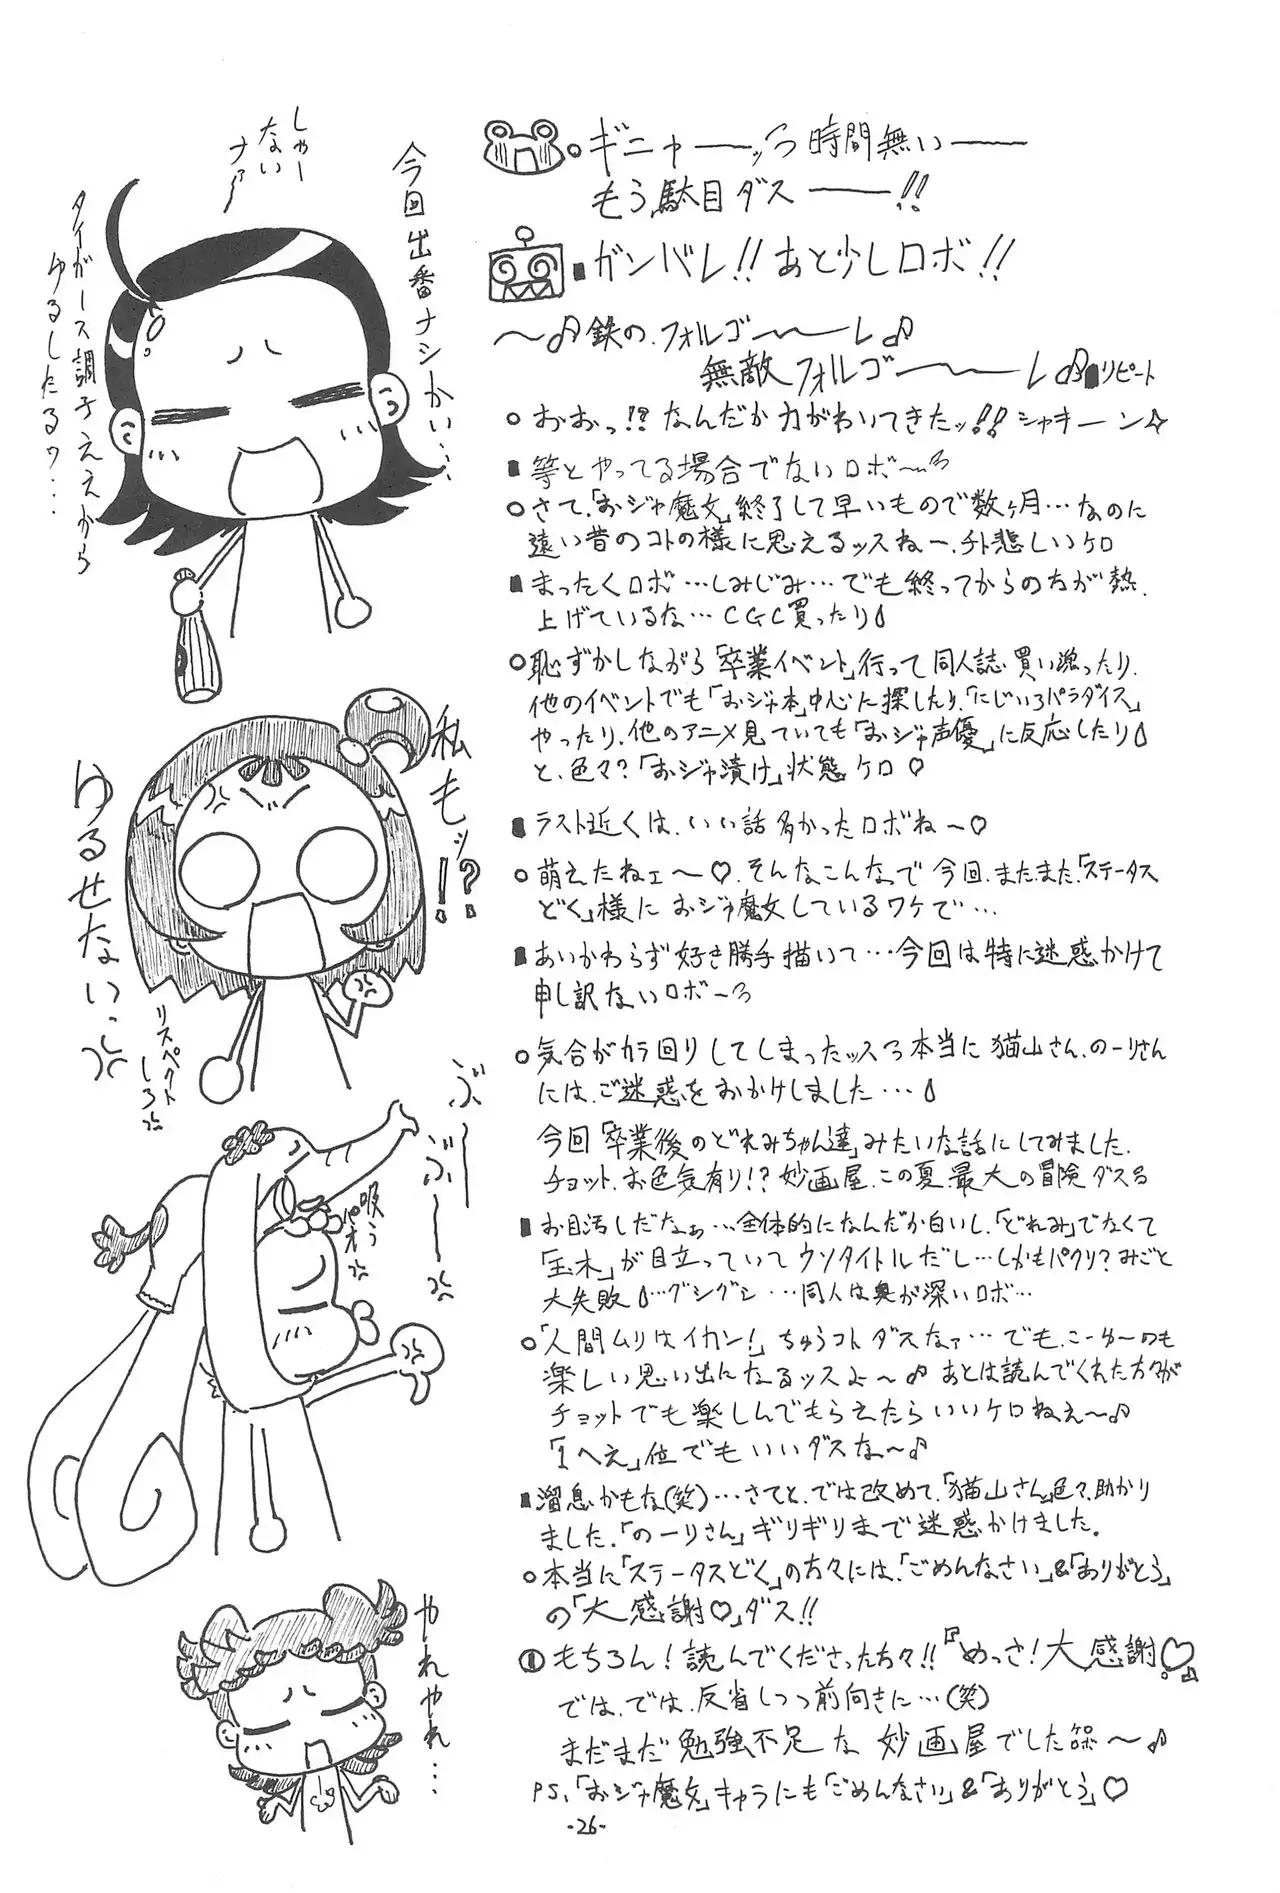 ギニャーーッろ時間無いーー
もう駄目ダスーー!!
ガンバレ!!あと少しロボ!!
〜♪鉄のフォルゴーーレ♪
無敵フォルゴーーレ♪リピート
○おおっ!?なんだか力がわいてきたッ!!シャキーーン☆
■等とやってる場合でないロボ〜ろ
○さて、「おジャ魔女」終了して早いもので数ヶ月…なのに
遠い昔のコトの様に思えるッスねー、チト悲しいケロ
■まったくロボ…しみじみ…でも終ってからの方が熱
上げているな…CGC買ったり
○恥ずかしながら「卒業イベント」行って同人誌買い漁ったり、
他のイベントでも「おジャ本」中心に探したり、「にじいろパラダイス」
やったり、他のアニメ見ていても「おジャ声優」に反応したり
と、色々?「おジャ漬け」状態ケロ♡
■ラスト近くは、いい話多かったロボね〜♡
○萌えたねェ〜♡、そんなこんなで今回、またまた、「ステータス
どく」様におジャ魔女しているワケで…
■あいかわらず好き勝手描いて…今回は特に迷惑かけて
申し訳ないロボ〜ろ
○気合がカラ回りしてしまったッスろ本当に猫山さん、のーりさん
には、ご迷惑をおかけしました…
今回「卒業後のどれみちゃん達」みたいな話にしてみました、
チョット、お色気有り!?妙画屋、この夏、最大の冒険ダスろ
■お目汚しだなぁ…全体的になんだか白いし、「どれみ」でなくて
「玉木」が目立っていてウソタイトルだし…しかもパクリ?みごと
大失敗…グシグシ…同人は奥が深いロボ…
○「人間ムリはイカン!」ちゅうコトダスなァ…でも、こーゆーワも
楽しい思い出になるッスよ〜♪あとは読んでくれた方々が
チョットでも楽しんでもらえたらいいケロねぇ〜♪
「1へえ」位でもいいダスな〜♪
■溜息かもな(笑)…さてと、では改めて、「猫山さん」色々、助かり
ました、「のーりさん」ギリギリまで迷惑かけました。
○本当に「ステータスどく」の方々には、「ごめんなさい」&「ありがとう」
の「大感謝♡」ダス!!
①もちろん!読んでくださった方々!!『めっさ!大感謝♡』
では、では、反省しつつ前向きに…(笑)
まだまだ勉強不足な妙画屋でした〜♪
PS、「おジャ魔女」キャラにも「ごめんなさい」&「ありがとう」♡
今回出番ナシかい…
しゃー
ない
ナァ〜
タイガース調子ええから
ゆるしたるワ…
私もッ!?
ゆるせない…
リスペクト
しろ
ぶーー
ぶーー
吸う
パオ
やれやれ…
-26-